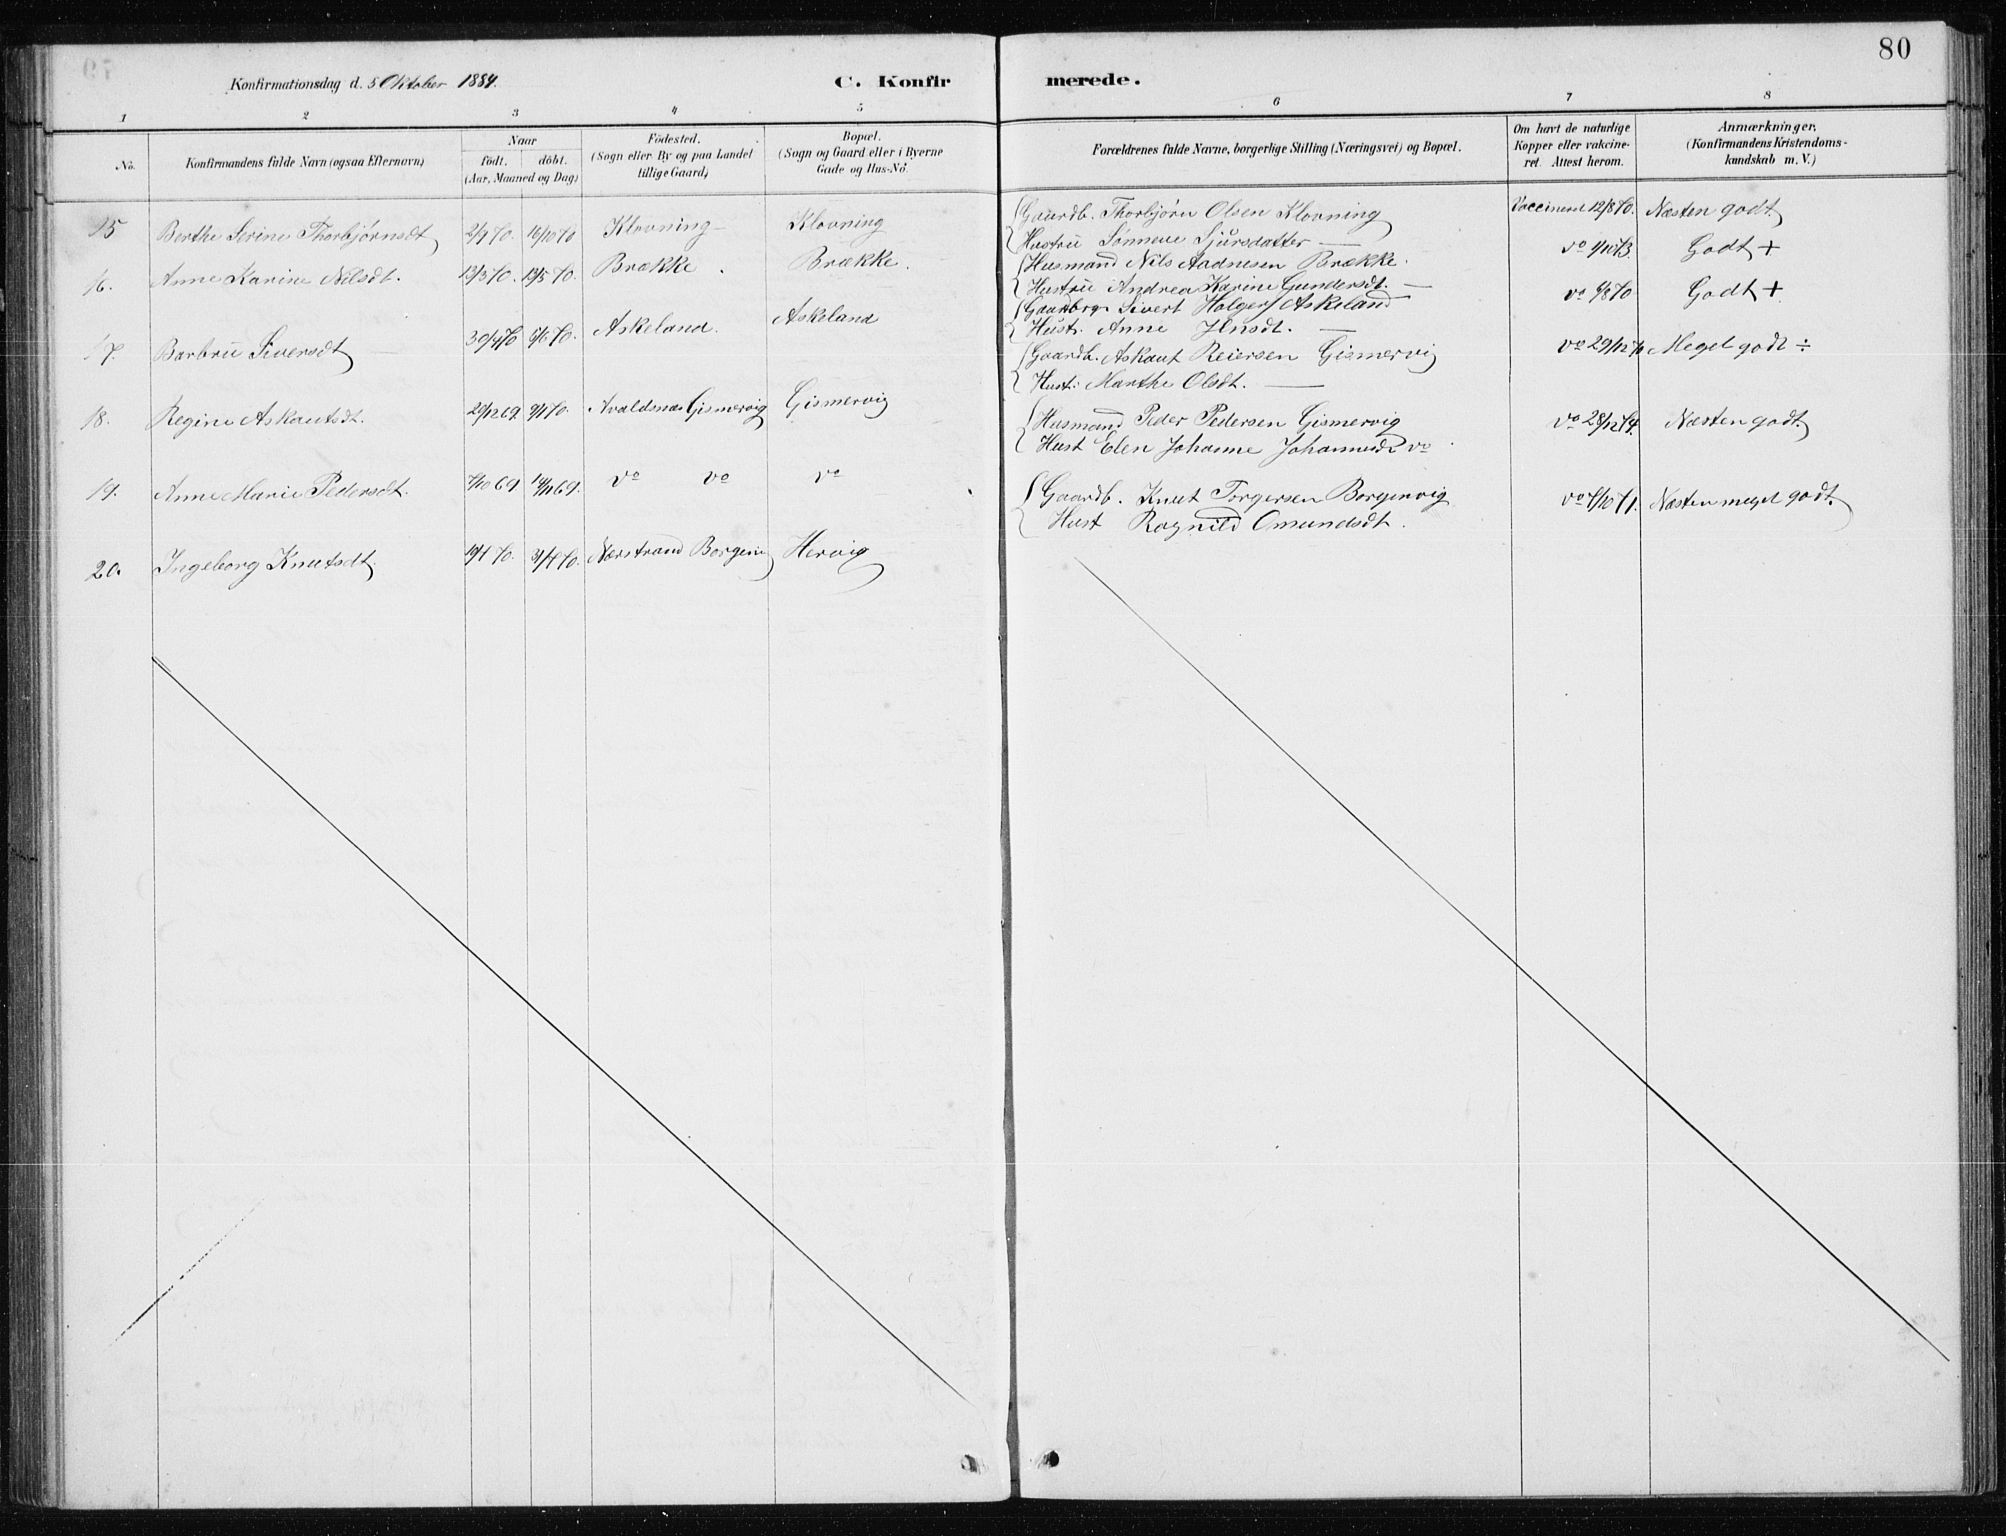 80
Konfirmationsdag d. 5 Oktober 1884.
C. Konfirmerede.
1 2 3 4 5 6 7 8
No. Konfirmandens fulde Navn (ogsaa Efternavn) Naar födt. döbt. (Aar, Maaned og Dag) Födested. (Sogn eller By og paa Landet tillige Gaard) Bopæl. (Sogn og Gaard eller i Byerne Gade og Hus-No. Forældrenes fulde Navne, borgerlige Stilling (Næringsvei) og Bopæl. Om havt de naturlige Kopper eller vakcineret. Attest herom. Anmærkninger. (Konfirmandens Kristendomskundskab m. V.)
15 Berthe Serine Thorbjörnsdt 2/9 70. 16/10 70 Klovning Klovning Gaardb. Thorbjörn Olsen Klovning Vaccineret 12/8 70. Næsten godt
Hustru Sönneve Sjursdatter —
16. Anne Karine Nilsdt. 13/3 70. 13/5 70. Brække. Brække. Husmand Nils Aadnesen Brække. vo 1/10 73. Godt +
Hustru Andrea Karine Gundersdt. —
17. Barbru Siversdt 30/4 70 6/6 70. Askeland. Askeland Gaardbr. Sivert Holgers Askeland vo 6/8 70 Godt +
Hust. Anne —
18. Regine Askautsdt. 29/12 69 9/1 70. Avaldsnæs Gismervig Gismervig Gaardb. Askaut Reiersen Gismervig vo 29/12 Meget godt ÷
Hust: Marthe Olsdt. —
19. Anne Marie Pedersdt. 7/10 69 14/11 69. vo vo vo Husmand Peder Pedersen Gismervig vo 28/12 74. Næsten godt.
Hust Elen Johanne Johannesdt vo
20. Ingeborg Knutsdt. 19/1 70. 31/1 70. Nærstrand Borgenvig Hervig Gaardb. Knut Torgersen Borgenvig vo 7/10 71. Næsten meget godt.
Hust Ragnild Omundsdt.